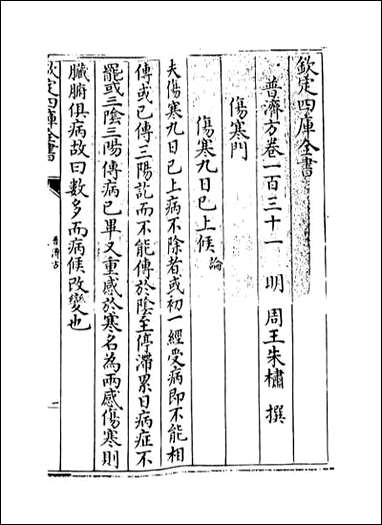 欽定四庫全書
普濟方卷一百三十一 明 周王朱橚 撰
傷寒門
傷寒九日已上候 論
夫傷寒九日已上病不除者或初一經受病即不能相
傳或已傳三陽訖而不能傳於陰至停滯累日病症不
罷或三陰三陽傳病已畢又重感於寒名為兩感傷寒則
臟腑俱病故曰數多而病候改變也
欽定四庫全書
普濟方
一